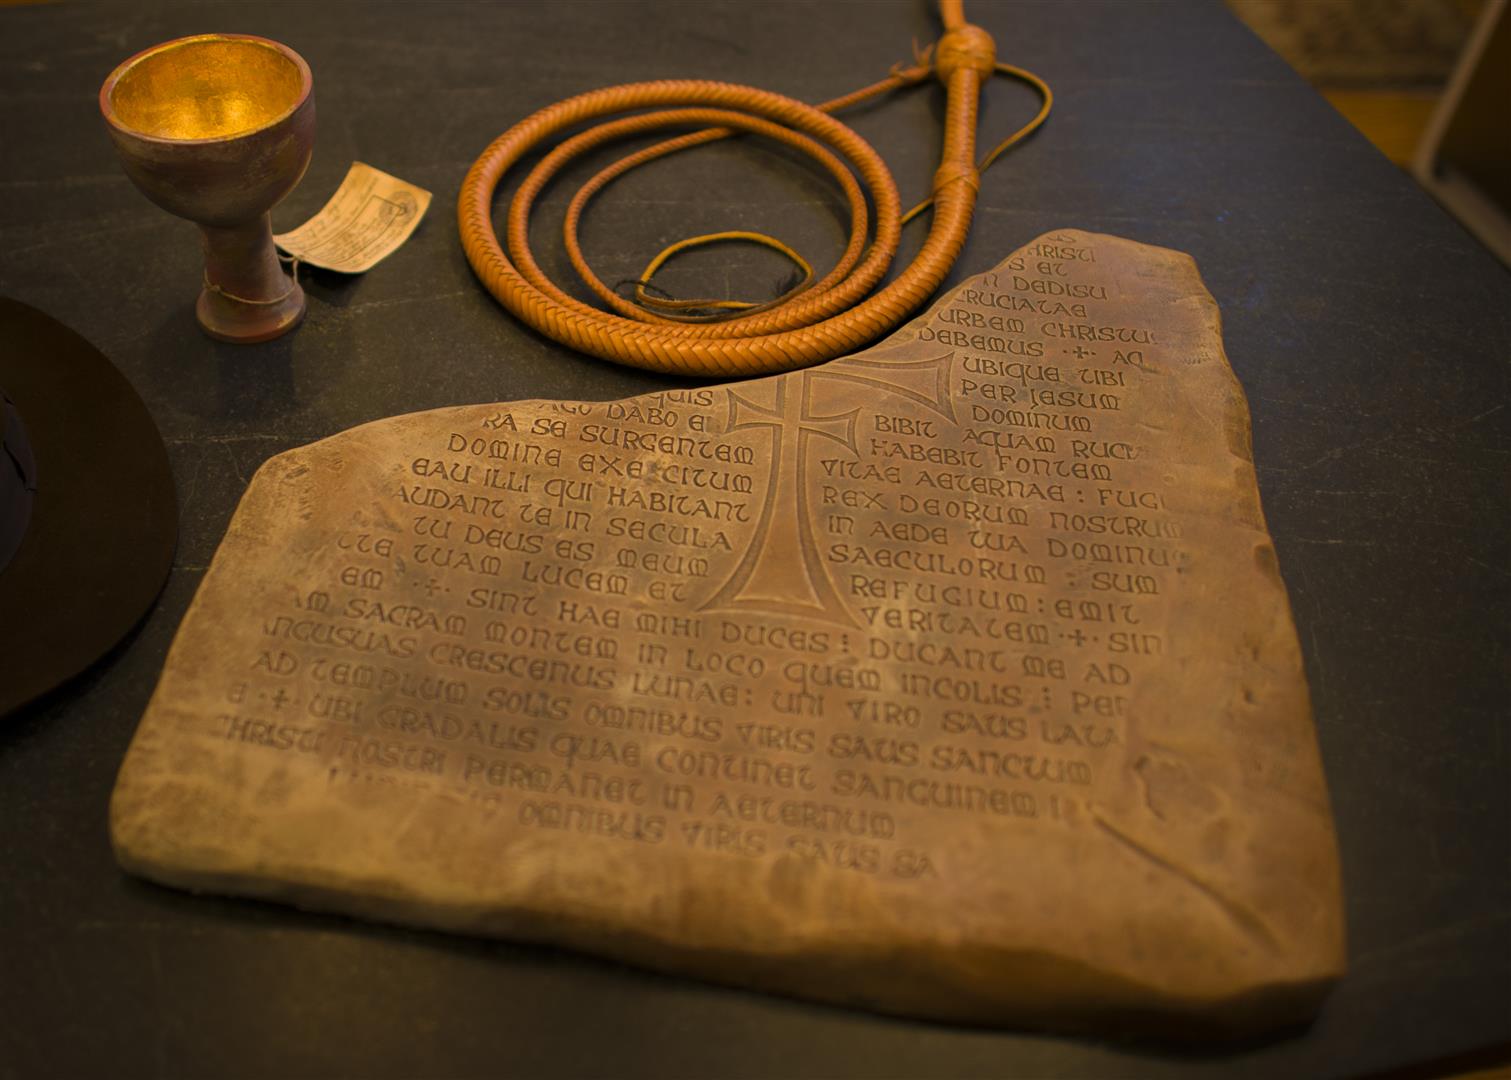 HRISTI
S ET
N DEDISU
CRUCIATAE
URBEM CHRISTU
DEBEMUS ·+· AD
UBIQUE UBI
PER JESUM
DOMINUM
QUIS BIBIT AQUAM
AGO DABO EI HABEBIT FONTEM
RA SE SURGENTEM VITAE AETERNAE : FUGI
DOMINE EXERCITUM REX DEORUM NOSTRUM
EAU ILLI QUI HABITANT IN AEDE TUA DOMINUS
AUDANT TE IN SECULA SAECULORUM : SUM
TU DEUS ES MEUM REFUGIUM : EMIT
TTE TUAM LUCEM ET VERITATEM ·+· SIN
EM ·+· SINT HAE MIHI DUCES ⁝ DUCANT ME AD
AM SACRAM MONTEM IN LOCO QUEM INCOLIS ⁝ PER
NGUSUAS CRESCENUS LUNAE : UNI VIRO SAUS LATA
AD TEMPLUM SOLIS OMNIBUS VIRIS SAUS SANCTUM
E ·+· UBI GRADALIS QUAE CONTINET SANGUINEM
CHRISTI NOSTRI PERMANET IN AETERNUM
OMNIBUS VIRIS SAUS SA